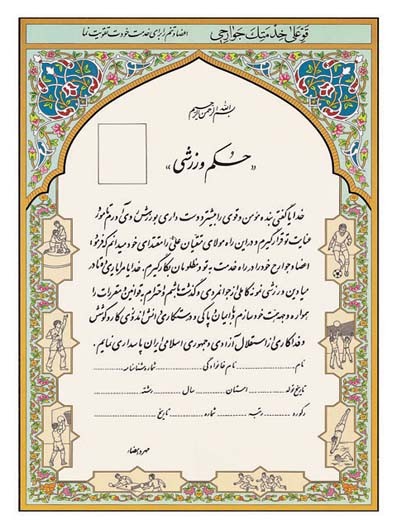 قَوِّ عَلى خِدمَتِكَ جَوارِحی
اعضاء و تنم را برای خدمت خودت تقویت نما
بسم الله الرحمن الرحیم
«حکم ورزشی»
خدایا گفتی بنده مؤمن و قوی را بیشتر دوست داری بورزش روی آوردم تا مورد
عنایت تو قرار گیرم و در این راه مولای متقیان علی را مقتدای خود میدانم که فرمود
اعضاء و جوارح خود را در راه خدمت به تو و مظلومان بکار گیرم. خدایا مرا یاری فرما تا در
میادین ورزشی نمونه کاملی از جوانمردی و گذشت باشم و احترام به قوانین و مقررات را
همواره وجهه همت خود سازم با ایمان و پاکی و درستکاری و دانش اندوزی و کار و کوشش
و فداکاری از استقلال آزادی و جمهوری اسلامی ایران پاسداری نمایم.
نام ............ نام خانوادگی ............ شماره شناسنامه ............
تاریخ تولد ............ استان ............ سال ............ رشته ............
رکورد ............ رتبه ............ شماره ............ تاریخ ............
مهر و امضاء